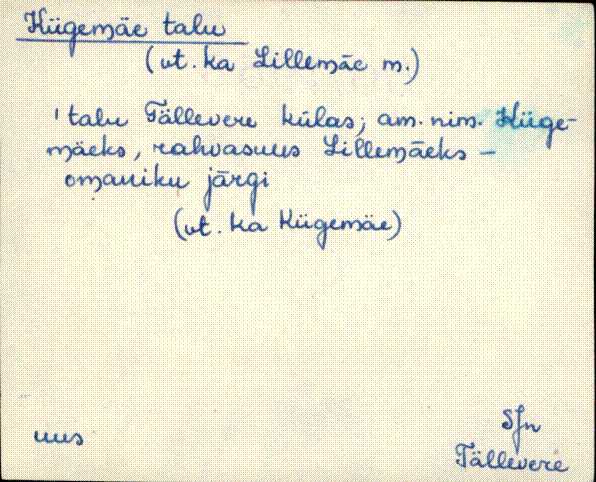 Kügemäe talu
(vt. ka Lillemäe m.)
'talu Tällevere külas; am. nim. Küge-
mäeks, rahvasuus Lillemäeks –
omaniku järgi
(vt. ka Kügemäe)
SJn
uus
Tällevere